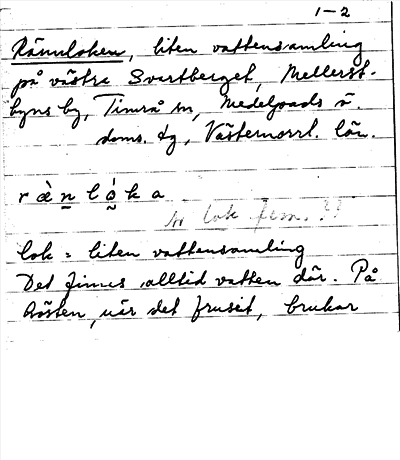 1-2
Rännloken, liten vattensamling
på västra Svartberget, Mellerst-
byns by, Timrå sn, Medelpads ö.
doms. dg, Västernorrl. län.
r ä̀ n l ó k a
är lok fem. ??
lok = liten vattensamling
Det finns alltid vatten där. På
hösten, när det frusit, brukar